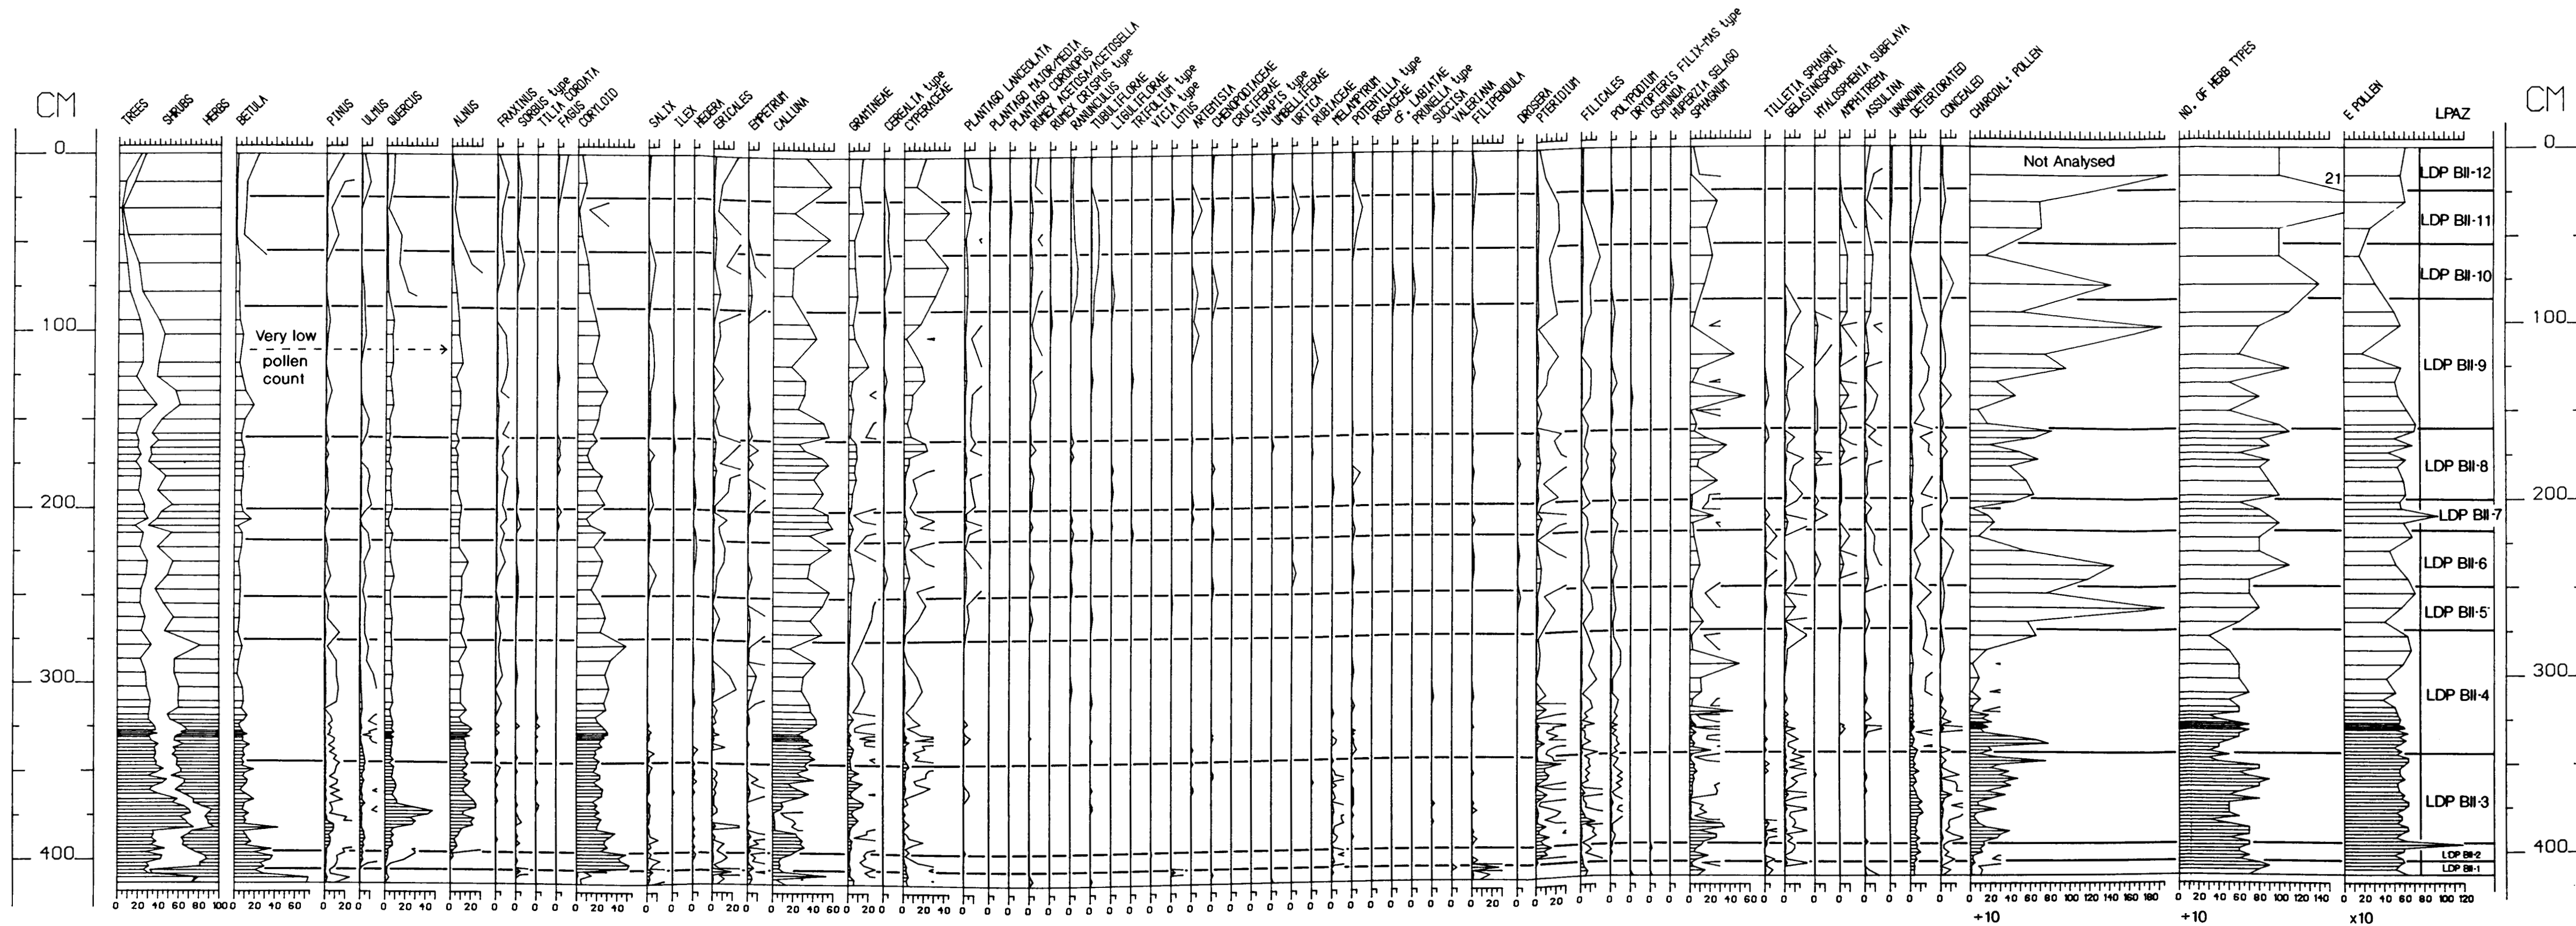 CM
TREES
SHRUBS
HERBS
BETULA
PINUS
ULMUS
QUERCUS
ALNUS
FRAXINUS
SORBUS type
TILIA CORDATA
FAGUS
CORYLOID
SALIX
ILEX
HEDERA
ERICALES
EMPETRUM
CALLUNA
GRAMINEAE
CEREALIA type
CYPERACEAE
PLANTAGO LANCEOLATA
PLANTAGO MAJOR/MEDIA
PLANTAGO CORONOPUS
RUMEX ACETOSA/ACETOSELLA
RUMEX CRISPUS type
RANUNCULUS type
TUBULIFLORAE
LIGULIFLORAE
TRIFOLIUM type
VICIA type
LOTUS
ARTEMISIA
CHENOPODIACEAE
CRUCIFERAE
SINAPIS type
UMBELLIFERAE
URTICA
RUBIACEAE
MELAMPYRUM
POTENTILLA type
ROSACEAE
cf. LABIATAE
PRUNELLA type
SUCCISA
VALERIANA
FILIPENDULA
DROSERA
PTERIDIUM
FILICALES
POLYPODIUM
DRYOPTERIS FILIX-MAS type
OSMUNDA
HUPERZIA SELAGO
SPHAGNUM
TILLETIA SPHAGNI
GELASINOSPORA
HYALOSPHENIA SUBFLAVA
AMPHITREMA
ASSULINA
UNKNOWN
DETERIORATED
CONCEALED
CHARCOAL: POLLEN
NO. OF HERB TYPES
E POLLEN
LPAZ
CM
0
100
200
300
400
Very low
pollen
count
Not Analysed
21
LDP BII-12
LDP BII-11
LDP BII-10
LDP BII-9
LDP BII-8
LDP BII-7
LDP BII-6
LDP BII-5
LDP BII-4
LDP BII-3
LDP BII-2
LDP BII-1
0
100
200
300
400
0 20 40 60 80 100
0 20 40 60
0 20
0
0 20 40
0
0
0
0
0
0 20 40
0
0
0
0 20
0
0 20 40 60
0 20
0
0 20 40
0
0
0
0
0
0
0
0
0
0
0
0
0
0
0
0
0
0
0
0
0
0
0
0
0
0 20
0
0 20
0
0
0
0
0
0 10 20 30 40 50 60
0
0
0
0
0
0
0
0
0 20 40 60 80 100 120 140 160 180
÷10
0 20 40 60 80 100 120 140
÷10
0 20 40 60 80 100 120
x10